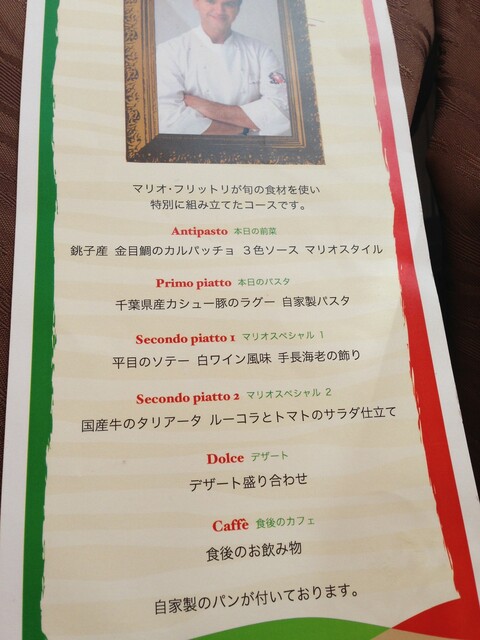 マリオ・フリットリが旬の食材を使い
特別に組み立てたコースです。
Antipasto 本日の前菜
銚子産 金目鯛のカルパッチョ ３色ソース マリオスタイル
Primo piatto 本日のパスタ
千葉県産カシュー豚のラグー 自家製パスタ
Secondo piatto 1 マリオスペシャル 1
平目のソテー 白ワイン風味 手長海老の飾り
Secondo piatto 2 マリオスペシャル 2
国産牛のタリアータ ルーコラとトマトのサラダ仕立て
Dolce デザート
デザート盛り合わせ
Caffè 食後のカフェ
食後のお飲み物
自家製のパンが付いております。